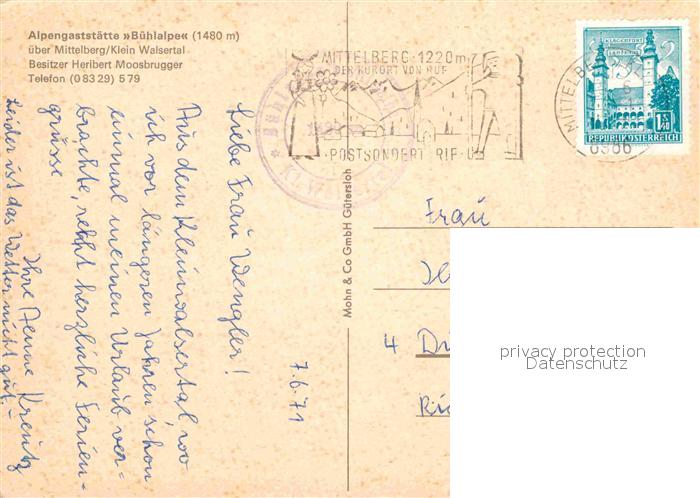 Alpengaststätte »Bühlalpe« (1480 m)
über Mittelberg/Klein Walsertal
Besitzer Heribert Moosbrugger
Telefon (0 83 29) 5 79
MITTELBERG 1220m
DER KURORT VON RUF
POSTSONDERT RIF-
MITTELBE
6986
KLAGENFURT
LANDHAUS
1.40
REPUBLIK ÖSTERREICH
Bühl
Kl. Wal
7.6.71
Liebe Frau Wengler!
Aus dem Kleinwalsertal, wo
ich vor längeren Jahren schon
einmal meinen Urlaub ver-
brachte, recht herzliche Ferien-
grüsse
Ihre Aenne Kreutz
Leider ist das Wetter nicht gut. -
Mohn & Co GmbH Gütersloh
Frau
4 Dü
privacy protection
Datenschutz